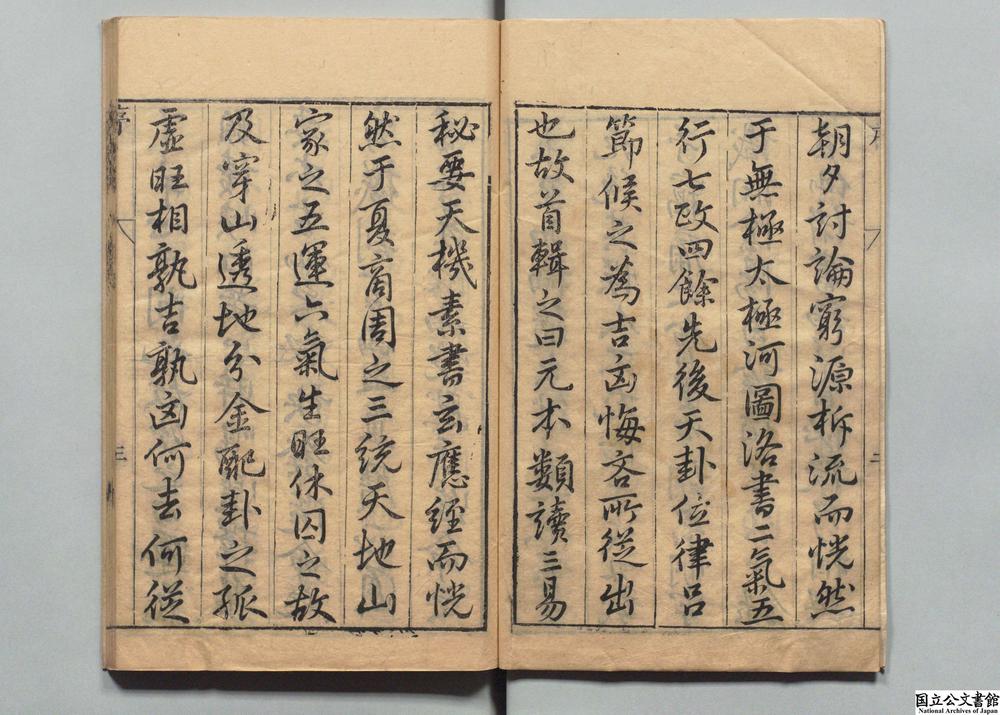 朝夕討論窮源析流而恍然
于無極太極河圖洛書二氣五
行七政四餘先後天卦位律呂
節候之為吉凶悔吝所從出
也故首輯之曰元本類讀三易
秘要天機素書玄應經而恍
然于夏商周之三統天地山
家之五運六氣生旺休囚之故
及穿山透地分金配卦之孤
虛旺相孰吉孰凶何去何從
序
三
国立公文書館
National Archives of Japan